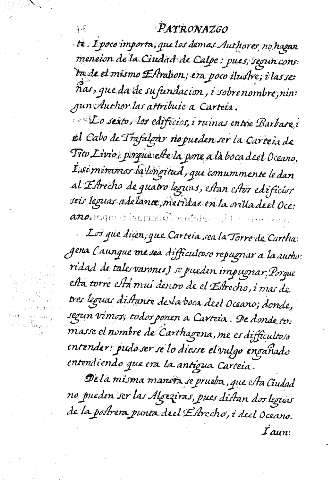 PATRONAZGO
te. I poco importa, que los demas Authores, no hagan
mencion de la Ciudad de Calpe: pues, segun cons
ta de el mismo Estrabon; era poco ilustre; i las se
ñas, que da de su fundacion, i sobrenombre; nin
gun Author las attribuie a Carteia.
Lo sexto, los edificios, i ruinas entre Barbate, i
el Cabo de Trafalgar no pueden ser la Carteia de
Tito Livio; porque este la pone a la boca de el Oceano.
I si miramos la longitud, que comunmente le dan
al Estrecho de quatro leguas, estan estos edificios
seis leguas adelante, metidas en la orilla de el Oce
ano.
Los que dicen, que Carteia sea la Torre de Cartha
gena (aunque me sea difficultoso repugnar a la autho
ridad de tales varones) se pueden impugnar; Porque
esta torre está mui dentro de el Estrecho, i mas de
tres leguas distante de la boca de el Oceano; donde,
segun vimos, todos ponen a Carteia. De donde to
masse el nombre de Carthagena, me es difficultoso
entender: pudo ser se lo diesse el vulgo engañado
entendiendo que era la antigua Carteia.
De la misma manera se prueba, que esta Ciudad
no pueden ser las Algeziras, pues distan dos leguas
de la postrera punta de el Estrecho, i de el Oceano.
I aun: